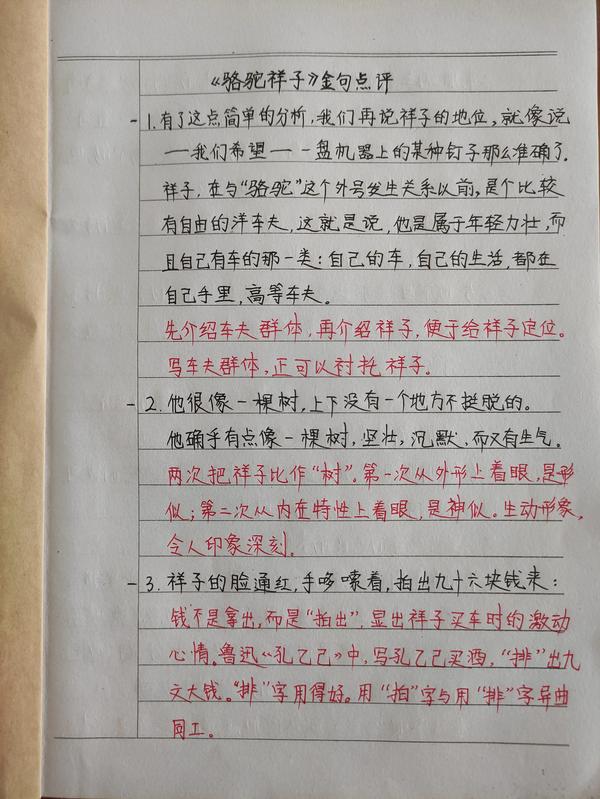 《骆驼祥子》金句点评
1. 有了这点简单的分析，我们再说祥子的地位，就像说
一我们希望一一盘机器上的某种钉子那么准确了。
祥子，在与“骆驼”这个外号发生关系以前，是个比较
有自由的洋车夫，这就是说，他是属于年轻力壮，而
且自己有车的那一类：自己的车，自己的生活，都在
自己手里，高等车夫。
先介绍车夫群体，再介绍祥子，便于给祥子定位。
写车夫群体，正可以衬托祥子。
2. 他很像一棵树，上下没有一个地方不挺脱的。
他确乎有点像一棵树，坚壮，沉默，而又有生气。
两次把祥子比作“树”。第一次从外形上着眼，是形
似；第二次从内在特性上着眼，是神似。生动形象，
令人印象深刻。
3. 祥子的脸通红，手哆嗦着，拍出九十六块钱来：
钱不是拿出，而是“拍出”，显出祥子买车时的激动
心情。鲁迅《孔乙己》中，写孔乙己买酒，“排”出九
文大钱。“排”字用得好。用“拍”字与用“排”字异曲
同工。